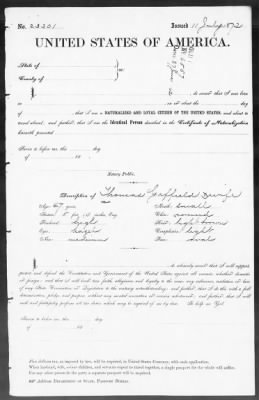 No. 23301 Issued 11 July 1872
UNITED STATES OF AMERICA.
State of
County of
ss:
I, do swear that I was born
in on or about the day
of , that I am a NATURALIZED AND LOYAL CITIZEN OF THE UNITED STATES, and about to
travel abroad; and further, that I am the Identical Person described in the Certificate of Naturalization
herewith presented.
Sworn to before me, this day
of 18 .
Notary Public.
Description of Thomas Caffield & wife
Age: 67 years Mouth: small
Stature: 5 feet inches, Eng. Chin: round
Forehead: high Hair: light brown
Eyes: hazel Complexion: light
Nose: medium Face: oval
I, do solemnly swear that I will support,
protect, and defend the Constitution and Government of the United States against all enemies, whether domestic
or foreign; and that I will bear true faith, allegiance, and loyalty to the same, any ordinance, resolution, or law
of any State, Convention, or Legislature to the contrary notwithstanding; and further, that I do this with a full
determination, pledge, and purpose, without any mental reservation or evasion whatsoever; and further, that I will
well and faithfully perform all the duties which may be required of me by law. So help me God.
Sworn to before me, this day
of 18 .
with each application.
When husband, wife, minor children, and servants expect to travel together, a single passport for the whole will suffice.
For any other person in the party a separate passport will be required.
Address DEPARTMENT OF STATE, PASSPORT BUREAU.